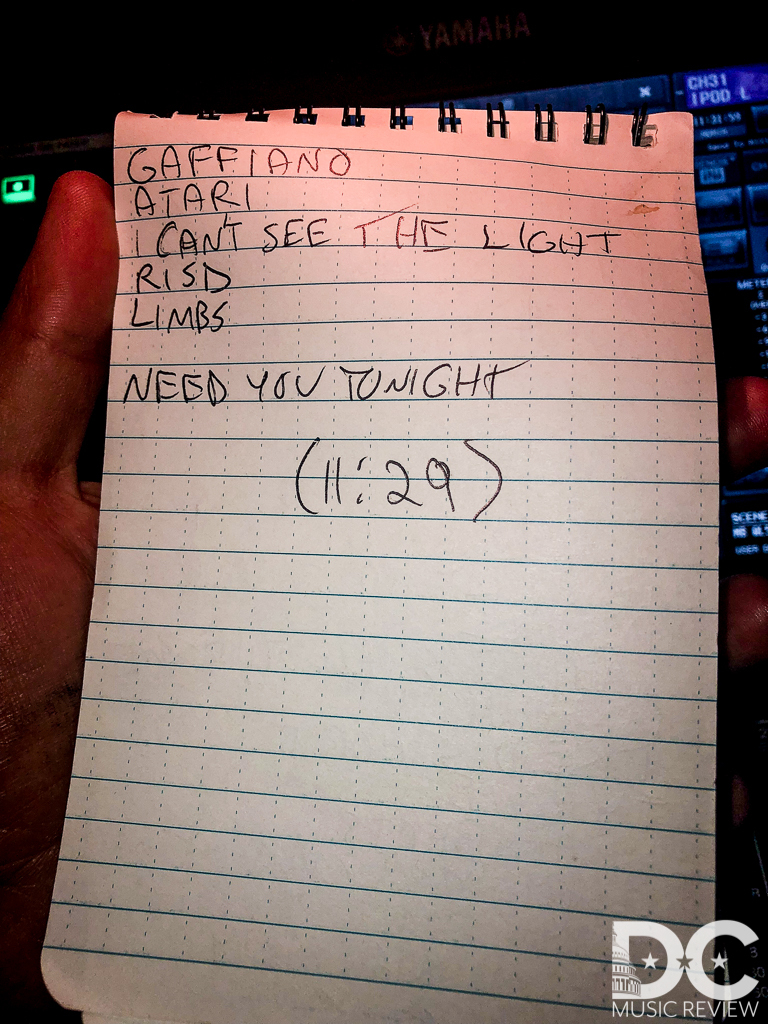 YAMAHA
CH31
IPOD L
GAFFIANO
ATARI
I CAN'T SEE THE LIGHT
RISD
LIMBS
NEED YOU TONIGHT
(11:29)
SCENE
DC
MUSIC REVIEW